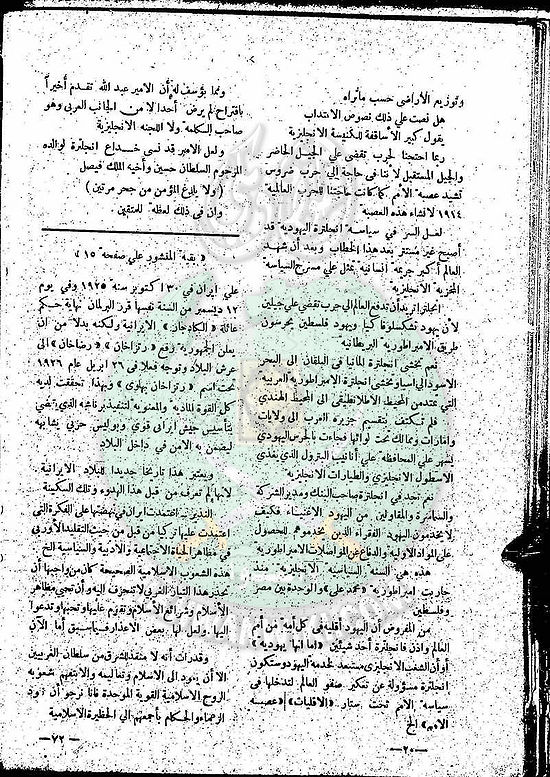 وتوزيع الأراضي حسب مآراه
هل نصت علي ذلك نصوص الانتداب
يقول كبير الأساقفة للكنيسة الانجليزية
ربما احتجنا لحرب تقضي علي الجيل الحاضر
والجيل المستقبل لأننا في حاجة إلي حرب ضروس
تشيد عصبة الأمم كما كانت حاجتنا للحرب العالمية
١٩١٤ لانشاء هذه العصبة
لعل السر في سياسة انجلترة اليهودية قد
أصبح غير مستتر بعد هذا الخطاب وبعد أن شهد
العالم أكبر جريمة انسانية يمثل علي مسرح السياسة
المخزية الأنجليزية
انجلترا تريد أن تدفع العالم الي حرب تقضي علي جيلين
لأن يهود تشكسلوفاكيا ويهود فلسطين يحرسون
طريق الامبراطورية البريطانية
نعم تخشي انجلترة المانيا في البلقان الى البحر
الاسود الى اسيا وتخشي انجلترة الامبراطورية العربية
التي تمتد من المحيط الاطلانطيقي الى المحيط الهندي
فلم تكتف بتقسيم جزيرة العرب الى ولايات
وامارات وممالك تحت لوائها فجاءت بالحرس اليهودي
يسهر علي المحافظة علي أنابيب البترول الذي يغذي
الاسطول الانجليزي والطيارات الانجليزية
نعم نجد في انجلترة صاحب البنك ومدير الشركة
والسماسرة والمقاولين من اليهود الاغنياء فكيف
لا يخدمون اليهود الفقراء الذين يخدموهم للحصول
على المواد الأولية والدفاع عن المواصلات الامبراطورية
هذه هي السنة السياسية الانجليزية منذ
حاربت امبراطورية «محمد علي» والوحدة بين مصر
وفلسطين
من المفروض أن اليهود أقلية في كل أمة من أمم
العالم واذن فانجلترة أحد شيئين «اما انها يهودية»
أو أن الشعب الانجليزى مستعبد لخدمة اليهود وستكون
انجلترة مسؤولة عن تعكير صفو العالم لتدخلها في
سياسة الامم تحت ستار «الاقليات» «عصبة
الامم» الخ
—٢٠—
ومما يؤسف له أن الامير عبد الله تقدم أخيراً
باقتراح لم يرض أحدا لا من الجانب العربي وهو
صاحب الكلمة ولا اللجنة الانجليزية
ولعل الامير قد نسى خداع انجلترة لوالده
المرحوم السلطان حسين وأخيه الملك فيصل
(ولا يلدغ المؤمن من جحر مرتين)
وان في ذلك لعظة للمتقين
«بقية المنشور علي صفحة ١٥»
علي ايران في ٣٠ أكتوبر سنة ١٩٢٥ وفي يوم
١٢ ديسمبر من السنة نفسها قرر البرلمان نهاية حكم
عائلة «الكادجار» الايرانية ولكنه بدلا من ان
يعلن الجمهورية رفع «رتزاخان» «رضاخان» الى
عرش البلاد وتوجه فعلا في ٢٦ ابريل عام ١٩٢٦
تحت اسم «رتزاخان بهلوى» وبهذا تحققت لديه
كل القوة المادية والمعنوية لتنفيذ برنامجه الذي يقضي
بتأسيس جيش ايراني قوى وبوليس حربي يشابهه
ليضمن به الامن في داخل البلاد
ويعتبر هذا تاريخا جديدا للبلاد الايرانية
لانها لم تعرف من قبل هذا الهدوء وتلك السكينة
اللذين اعتمدت ايران في نهضتها على الفكرة التي
اعتمدت عليها تركيا من قبل من حيث التقليد الأوربي
في مظاهر الحياة الاجتماعية والأدبية والسياسية الخ
هذه الشعوب الاسلامية الصحيحة كان من واجبها أن
تحذر هذا التيار الغربي لا تنجرف اليه وأن تحي مظاهر
الأسلام وشرائع الأسلام وتقوم عليها وتحبها وتدعوا
اليها ولعل لها بعض الاعذار فيما سبق أما الآن
وقد رأت أنه لا منقذ للشرق من سلطان الغربيين
الا أن يعود الى الاسلام وتعاليمه والا بتفهم شعوبه
الروح الاسلامية القوية الموحدة فانا نرجو أن يعود
الزعماء والحكام بأجمعهم الي الحظيرة الاسلامية
—٧٢—